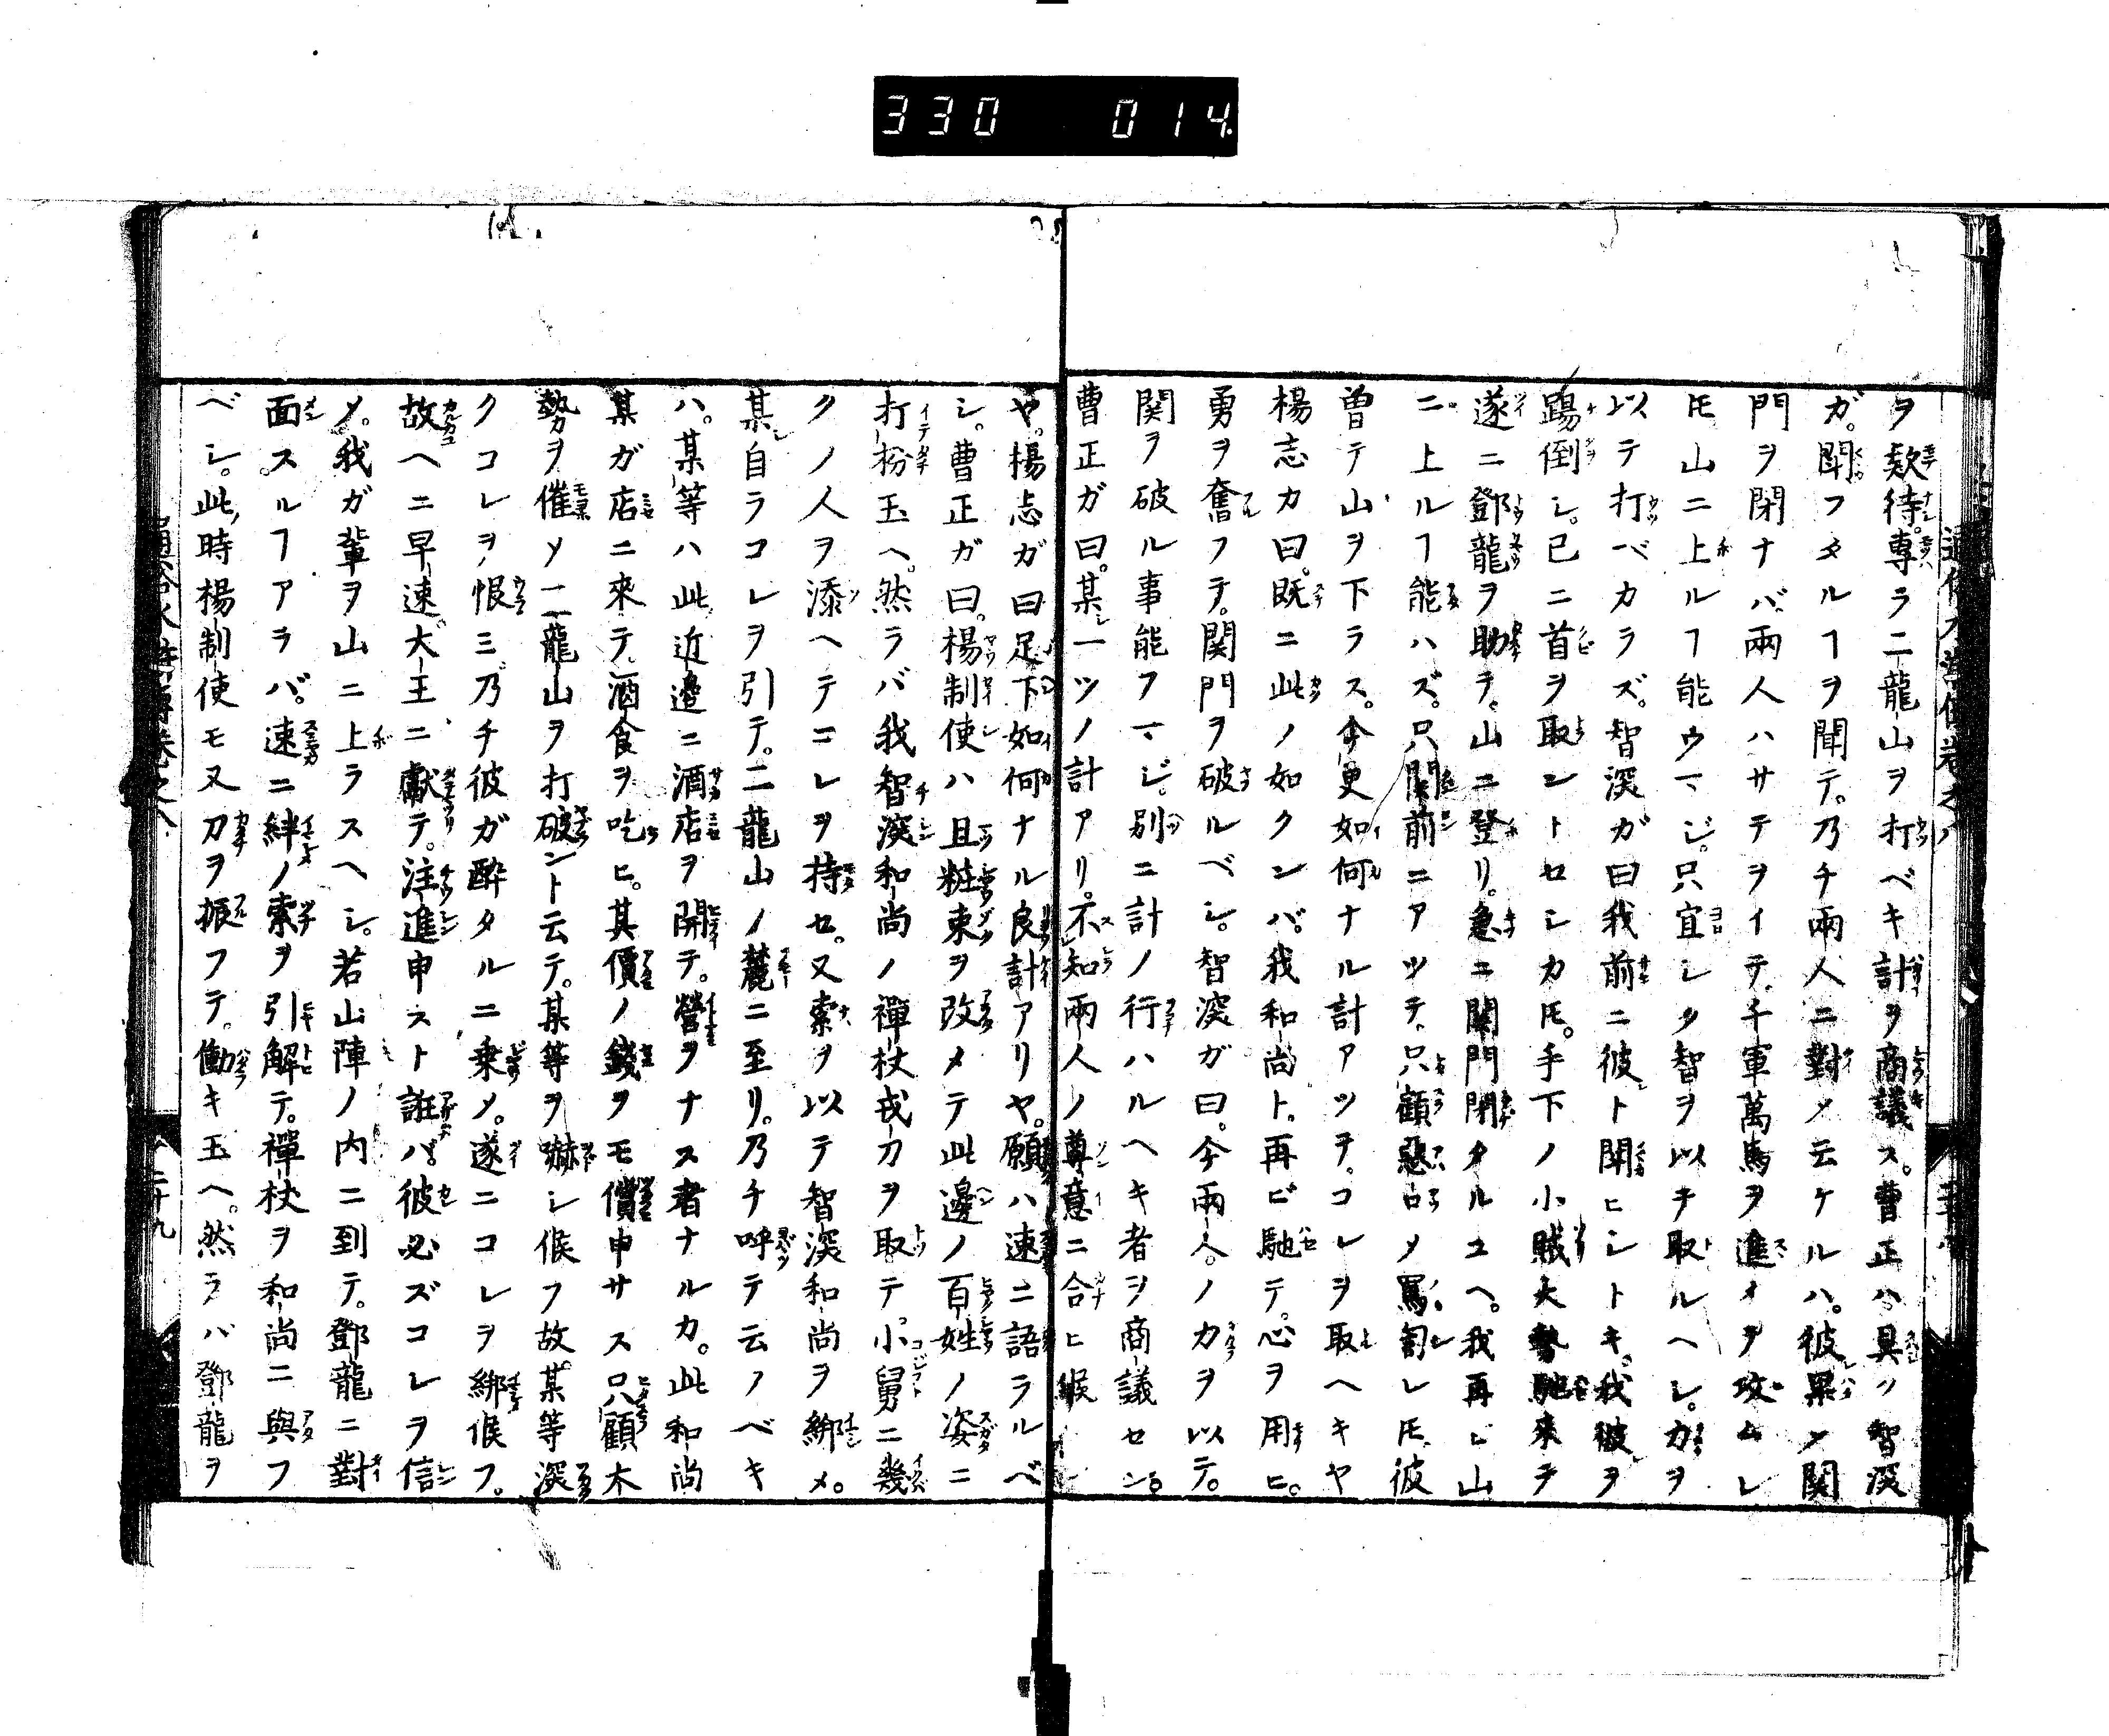 330 014
ヲ款待。專ラ二龍山ヲ打ベキ計ヲ商議ス。曹正ハ具ノ智深
ガ。閗フタルヿヲ聞テ。乃チ兩人ニ對メ云ケルハ。彼果メ関
門ヲ閉ナバ兩人ハサテヲイテ千軍萬馬ヲ進メヲ攻ムレ
𪜈山ニ上ルヿ能ウマジ。只宜シク智ヲ以テ取ルヘシ。力ヲ
以テ打ベカラズ。智深ガ曰我前ニ彼ト閗ヒシトキ。我彼ヲ
踢倒シ。已ニ首ヲ取ントセシカ𪜈。手下ノ小賊大勢馳來テ
遂ニ鄧龍ヲ助テ。山ニ登リ。急ニ関門閉タルユヘ。我再ビ山
ニ上ルヿ能ハズ。只関前ニアツテ。只顧惡口メ罵詈レ𪜈彼
曽テ山ヲ下ラス。今更如何ナル計アツテ。コレヲ取ヘキヤ
楊志カ曰。既ニ此ノ如クンバ。我和尚ト。再ビ馳テ。心ヲ用ヒ。
勇ヲ奮フテ。関門ヲ破ルベシ。智深ガ曰。今兩人。ノ力ヲ以テ。
関ヲ破ル事能フマジ。別ニ計ノ行ハルヘキ者ヲ商議セン。
曹正ガ曰。某一ツノ計アリ。不知兩人ノ尊意ニ合ヒ候
ヤ。楊志ガ曰足下如何ナル良計アリヤ。願ハ速ニ語ラルベ
シ。曹正ガ曰。楊制使ハ且粧束ヲ改メテ此邊ノ百姓ノ姿ニ
打扮玉ヘ。然ラバ我智深和尚ノ禪杖戒刀ヲ取テ。小舅ニ幾
クノ人ヲ添ヘテコレヲ持セ。又索ヲ以テ智深和尚ヲ綁メ。
某自ラコレヲ引テ。二龍山ノ麓ニ至リ。乃チ呼テ云ノベキ
ハ。某等ハ此近邉ニ酒店ヲ開テ。營ヲナス者ナルカ。此和尚
某ガ店ニ來テ。酒食ヲ吃ヒ。其價ノ錢ヲモ償申サス只顧木
勢ヲ催メ二龍山ヲ打破ント云テ。某等ヲ嚇シ候フ故。某等深
クコレヲ恨ミ乃チ彼ガ酔タルニ乗メ。遂ニコレヲ綁候フ。
故ヘニ早速。大王ニ獻テ。注進申スト誑バ。彼必ズコレヲ信
メ。我ガ輩ヲ山ニ上ラスヘシ。若山陣ノ内ニ到テ。鄧龍ニ對
面スルヿアラバ。速ニ絆ノ索ヲ引解テ。禪杖ヲ和尚ニ與フ
ベシ。此時楊制使モ又刀ヲ振フテ。働キ玉ヘ。然ラバ鄧龍ヲ